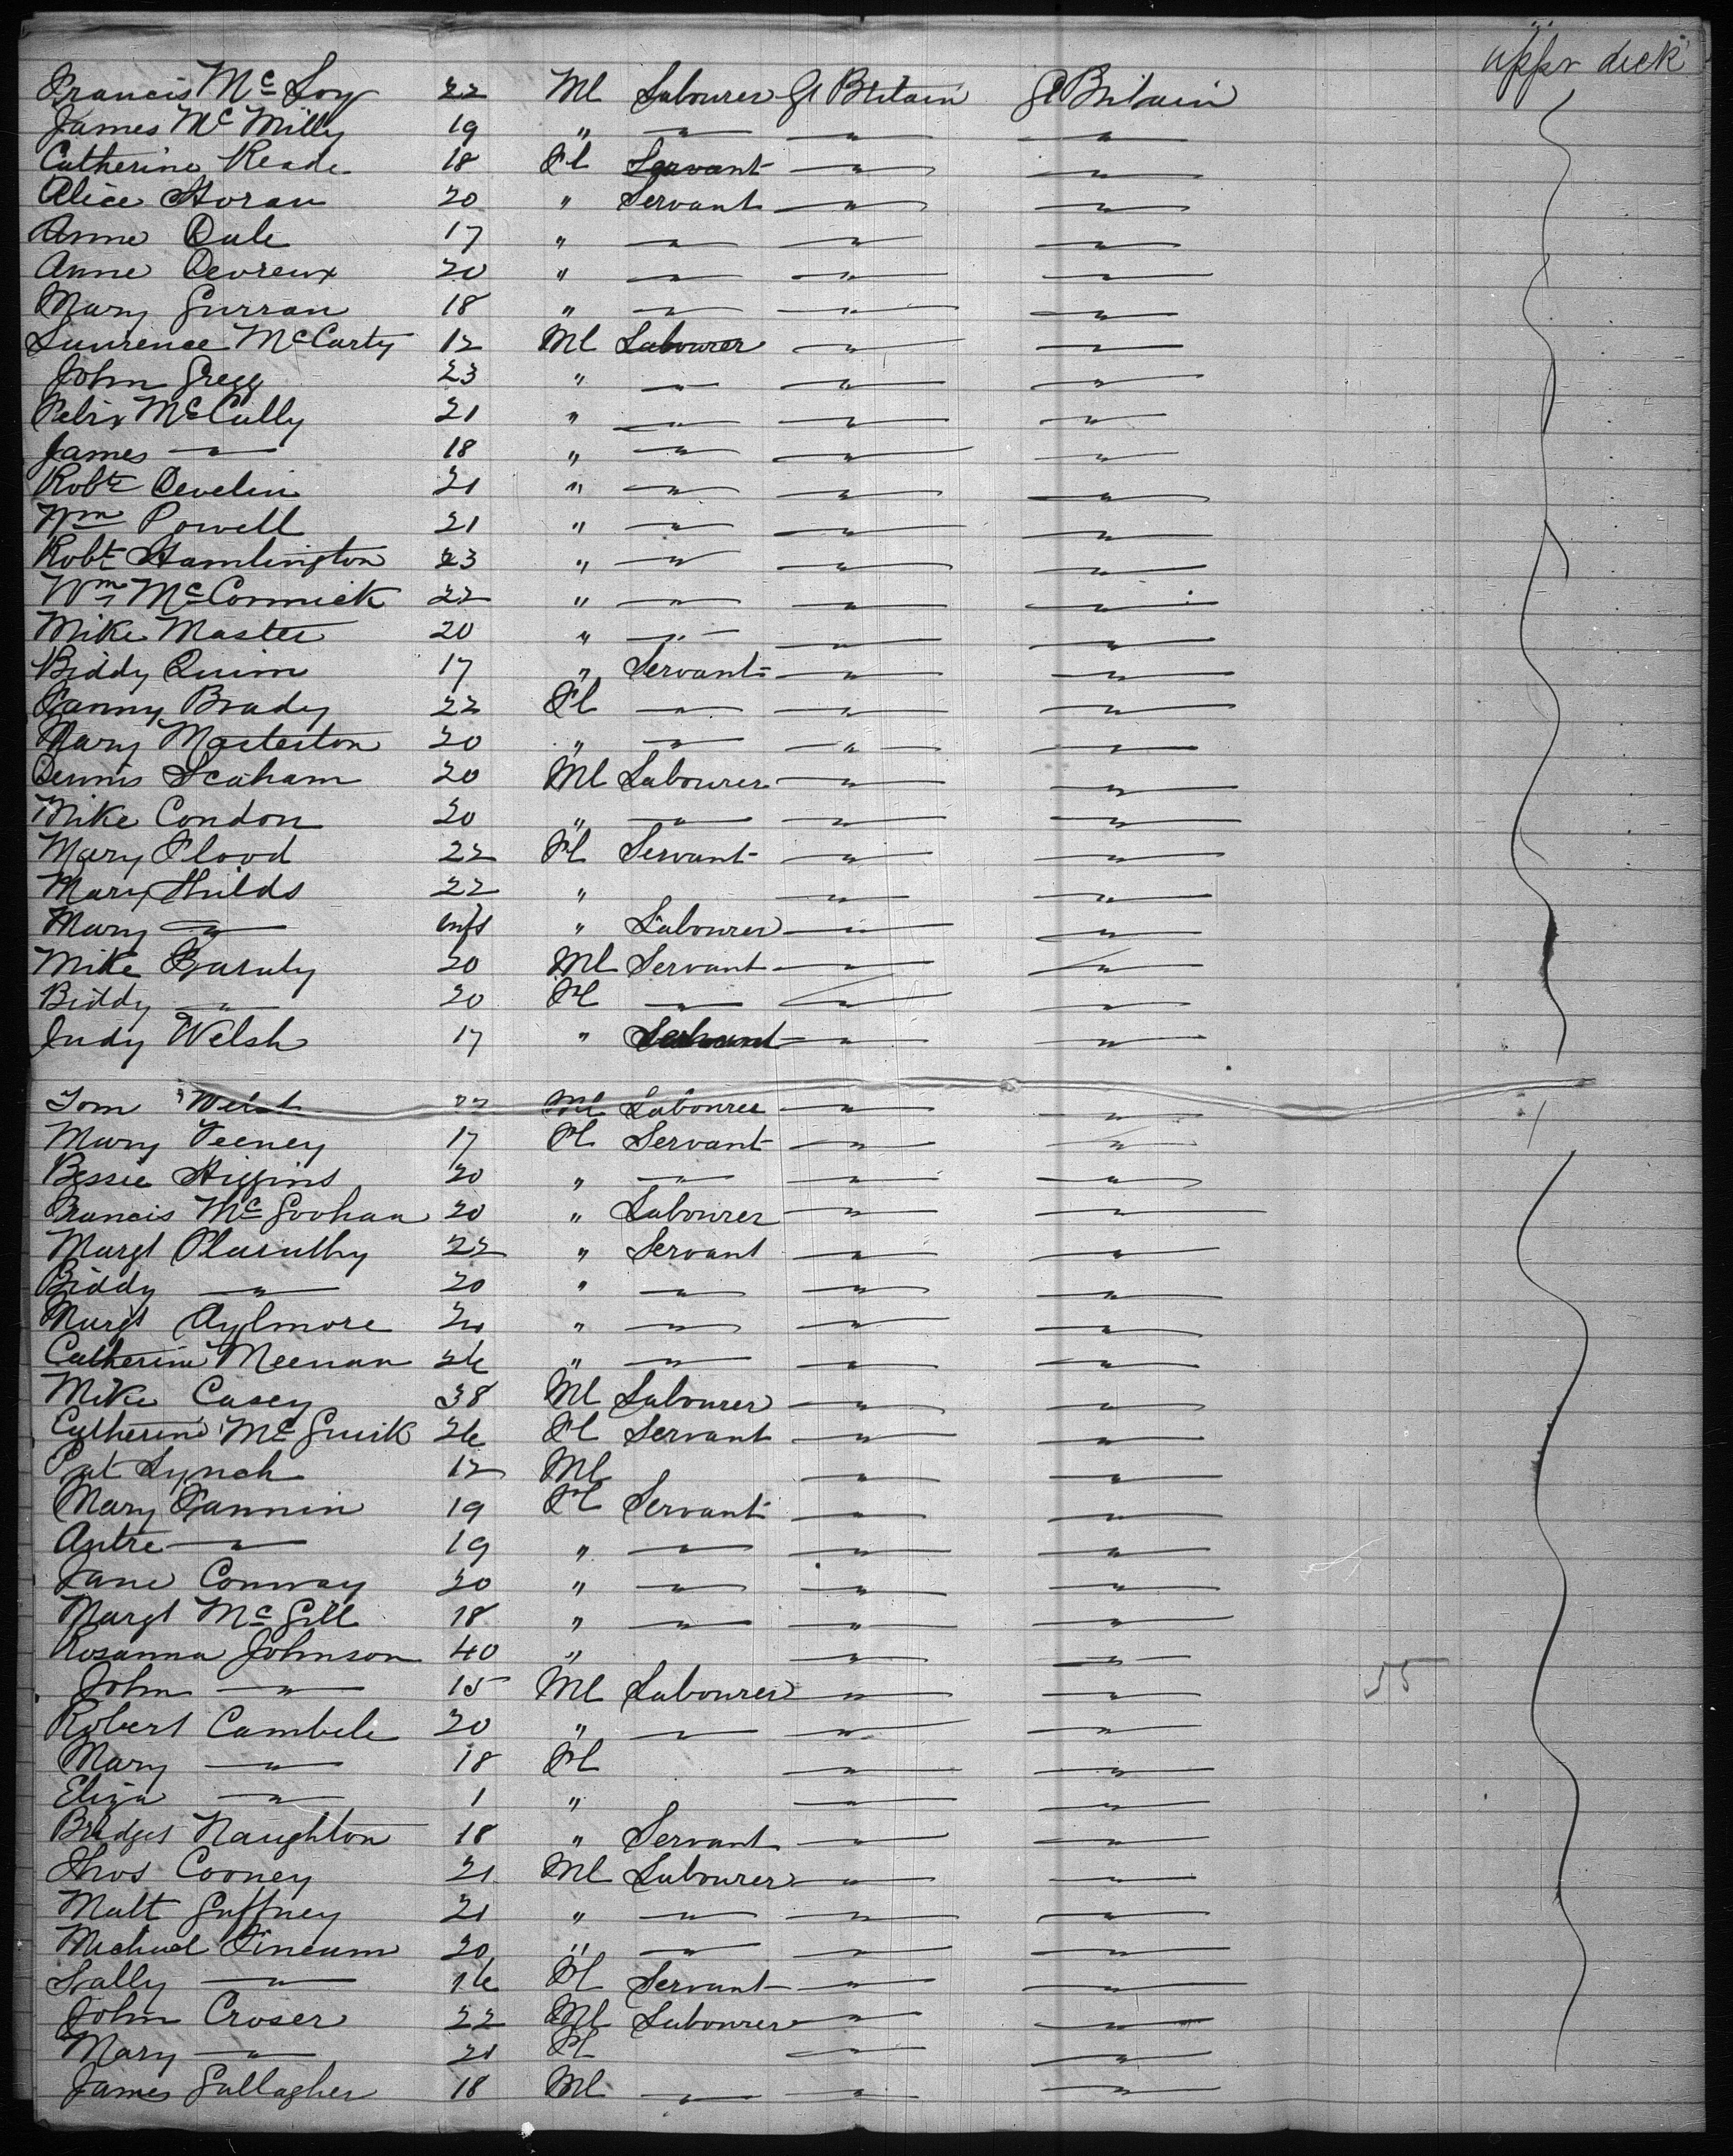 upper deck
Francis McLoy 22 Ml Labourer Gt Britain Gt Britain
James McMilly 19 " " " "
Catherine Reade 18 Fl Servant " "
Alice Horan 20 " Servant " "
Anne Dale 17 " " " "
Anne Devreux 20 " " " "
Mary Curran 18 " " " "
Laurence McCarty 12 Ml Labourer " "
John Gregg 23 " " " "
Felix McCully 21 " " " "
James " 18 " " " "
Robt Develin 21 " " " "
Wm Powell 21 " " " "
Robt Hamlington 23 " " " "
Wm McCormick 22 " " " "
Mike Master 20 " " " "
Biddy Quinn 17 " Servant " "
Fanny Brady 22 Fl " " "
Mary Masterton 20 " " " "
Dennis Leaham 20 Ml Labourer " "
Mike Condon 20 " " " "
Mary Flood 22 Fl Servant " "
Mary Shilds 22 " " "
Mary " inft " Labourer " "
Mike Garuty 20 Ml Servant " "
Biddy " 20 Fl " " "
Judy Welsh 17 " Servant " "
Tom Welsh 22 Ml Labourer " "
Mary Feeney 17 Fl Servant " "
Bessie Higgins 20 " " " "
Francis McGoohan 20 " Labourer " "
Margt 22 " Servant " "
Biddy " 20 " " " "
Margt Aylmore 20 " " " "
Catherine Meenan 26 " " " "
Mike Casey 38 Ml Labourer " "
Catherine McGuirk 26 Fl Servant " "
Pat Lynch 12 Ml " "
Mary Fannin 19 Fl Servant " "
" 19 " " " "
Jane Conway 20 " " " "
Margt McGill 18 " " " "
Rosanna Johnson 40 " " "
John " 15 Ml Labourer " " 55
Robert Cambele 20 " " " "
Mary " 18 Fl " "
Eliza " 1 " " "
Bridget Naughton 18 " Servant " "
Thos Cooney 21 Ml Labourer " "
Matt Gaffney 21 " " " "
Michael Fineum 20 " " " "
Sally " 16 Fl Servant " "
John Croser 22 Ml Labourer " "
Mary " 21 Fl " "
James Gallagher 18 Ml " " "